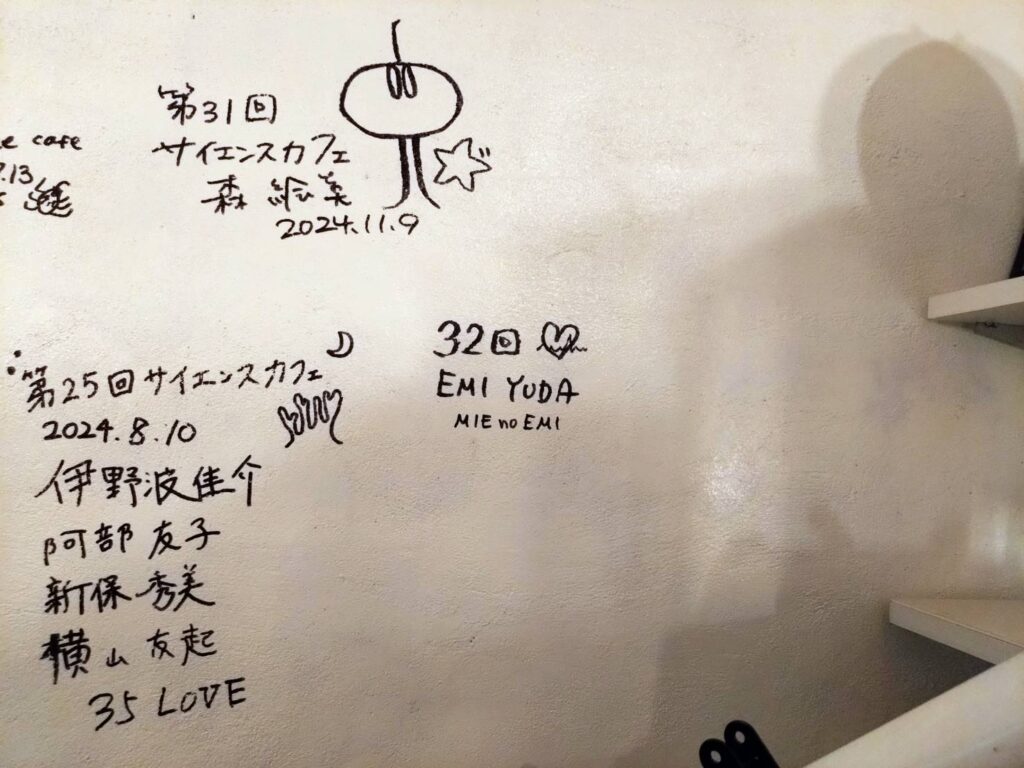 cafe
.13
第31回
サイエンスカフェ
森 絵美
2024.11.9
第25回サイエンスカフェ
2024.8.10
伊野波佳介
阿部 友子
新保 秀美
横山 友起
35 LOVE
32回
EMI YUDA
MIE no EMI